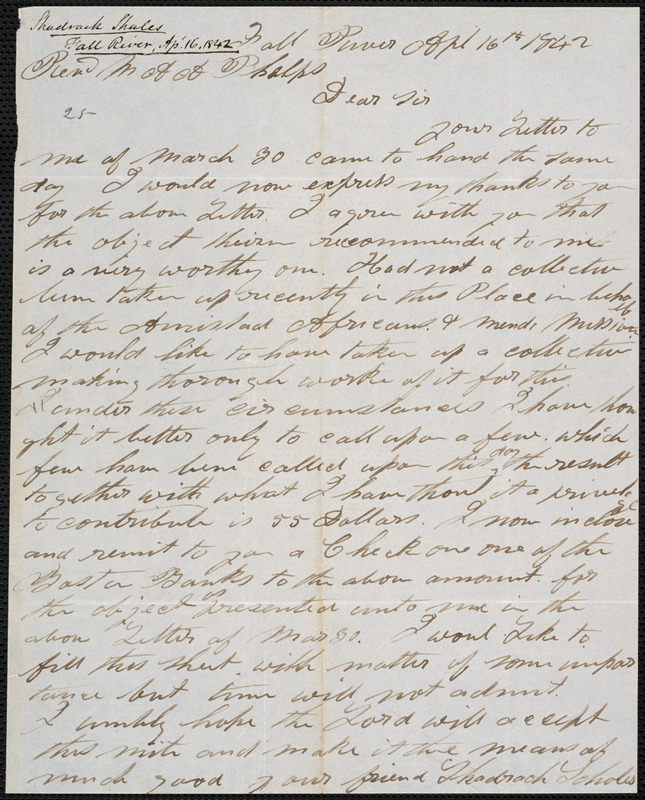 Shadrack Shales
Fall River, Ap. 16. 1842
Fall River Apl 16th 1842
Revd M A A Phelps
Dear Sir
25
your Letter to
me of March 30 came to hand the same
day I would now express my thanks to you
for the above Letter. I agree with you that
the object theirin reccommended to me
is a very worthy one. Had not a collective
bene taken up recently in this Place in behalf
of the Amistad Africans. & Mendi Mission
I would like to have taken up a collective
making thorough worke of it for this
under these circumstances I have thou
ght it better only to call upon a few. which
few have bene called upon this day the result
together with what I have thout it a privele
ge to contribute is 55 Dollars. I now inclose
and remit to you a Check one one of the
Boston Banks to the above amount. for
the object as presented unto me in the
above Letter of Mar 30. I woul Like to
fill this sheet with matter of some impor
tance but time will not admit.
I umbly hope the Lord will accept
this mite and make it the means of
much good your friend Shadrach Scholes